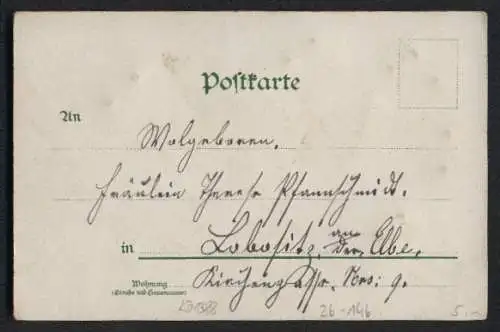 Postkarte
An
Wolgeboren,
Fräulein Therese Pfannschmidt.
in Lobositz, an der Elbe,
Wohnung
(Straße und Hausnummer)
Kirchengasse, Nro: 9.
26-146
5.-